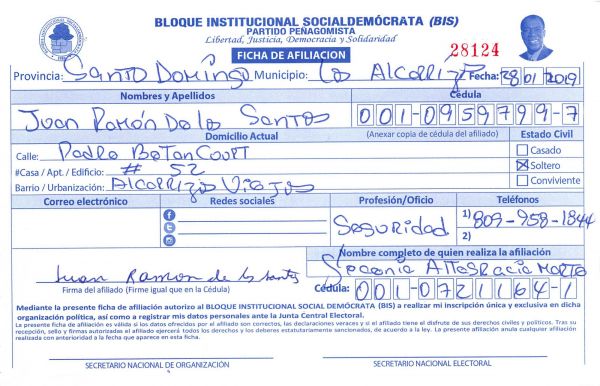 BLOQUE INSTITUCIONAL SOCIALDEMÓCRATA (BIS)
PARTIDO PEÑAGOMISTA
Libertad, Justicia, Democracia y Solidaridad
FICHA DE AFILIACION
28124
Provincia: Santo Domingo Municipio: Los Alcarrizo Fecha: 28/01/2019
Nombres y Apellidos
Cédula
Juan Ramón De los Santos
001-0959799-7
Domicilio Actual
(Anexar copia de cédula del afiliado)
Estado Civil
Calle: Pedro Betancourt
Casado
#Casa / Apt. / Edificio: # 52
Soltero
Barrio / Urbanización: Alcarrizo Viejos
Conviviente
Correo electrónico
Redes sociales
Profesión/Oficio
Teléfonos
Seguridad
1) 809-958-1844
2)
Nombre completo de quien realiza la afiliación
Altagracia
Juan Ramon de los Santos
Firma del afiliado (Firme igual que en la Cédula)
Cédula: 001-0721164-1
Mediante la presente ficha de afiliación autorizo al BLOQUE INSTITUCIONAL SOCIAL DEMÓCRATA (BIS) a realizar mi inscripción única y exclusiva en dicha
organización política, así como a registrar mis datos personales ante la Junta Central Electoral.
La presente ficha de afiliación es válida si los datos ofrecidos por el afiliado son correctos, las declaraciones veraces y si el afiliado tiene el disfrute de sus derechos civiles y políticos. Tras su
recepción, sello y firmas autorizadas el afiliado ejercerá todos los derechos y los deberes estatutariamente sancionados, de acuerdo a la ley. La presente afiliación anula cualquier afiliación
realizada con anterioridad a la fecha que aparece en esta ficha.
SECRETARIO NACIONAL DE ORGANIZACIÓN
SECRETARIO NACIONAL ELECTORAL